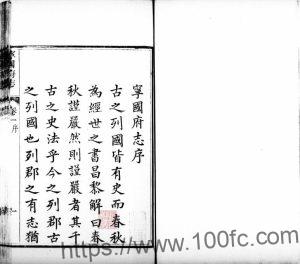 寧國府志序
古之列國皆有史而春秋
為經世之書昌黎解曰春
秋謹嚴然則謹嚴者其千
古之史法乎今之列郡古
之列國也列郡之有志猶
卷一序
https://www.100fc.com